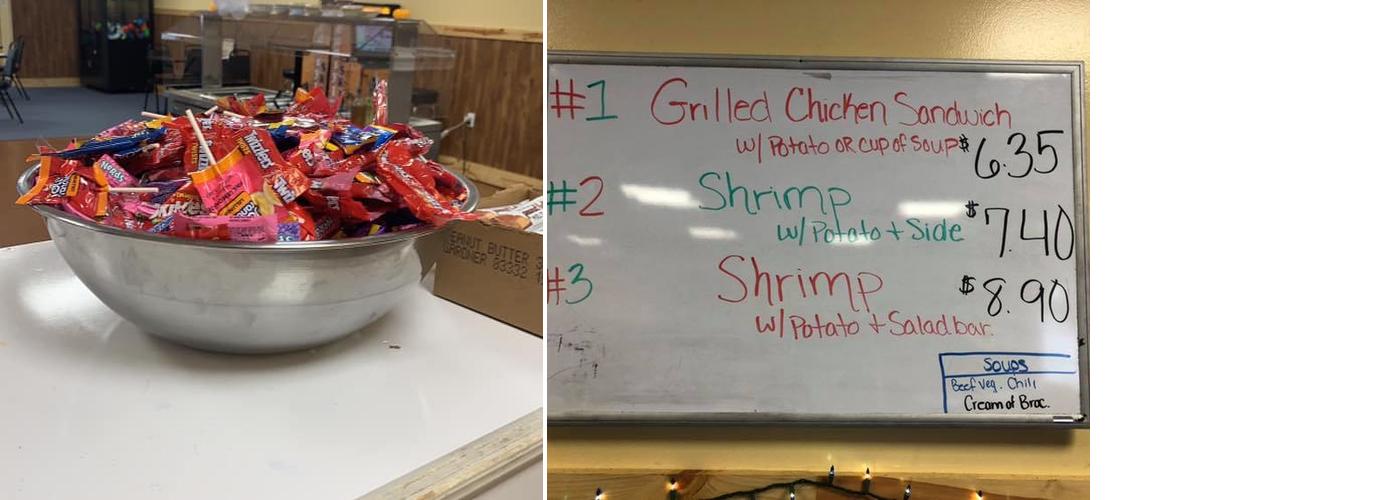 Twizzlers
Nerds
PEANUT BUTTER
GARDNER 83332
#1 Grilled Chicken Sandwich
w/ Potato OR cup of soup $6.35
#2 Shrimp
w/ Potato + Side $7.40
#3 Shrimp
w/ Potato + Salad bar. $8.90
Soups
Beef Veg. Chili
Cream of Broc.